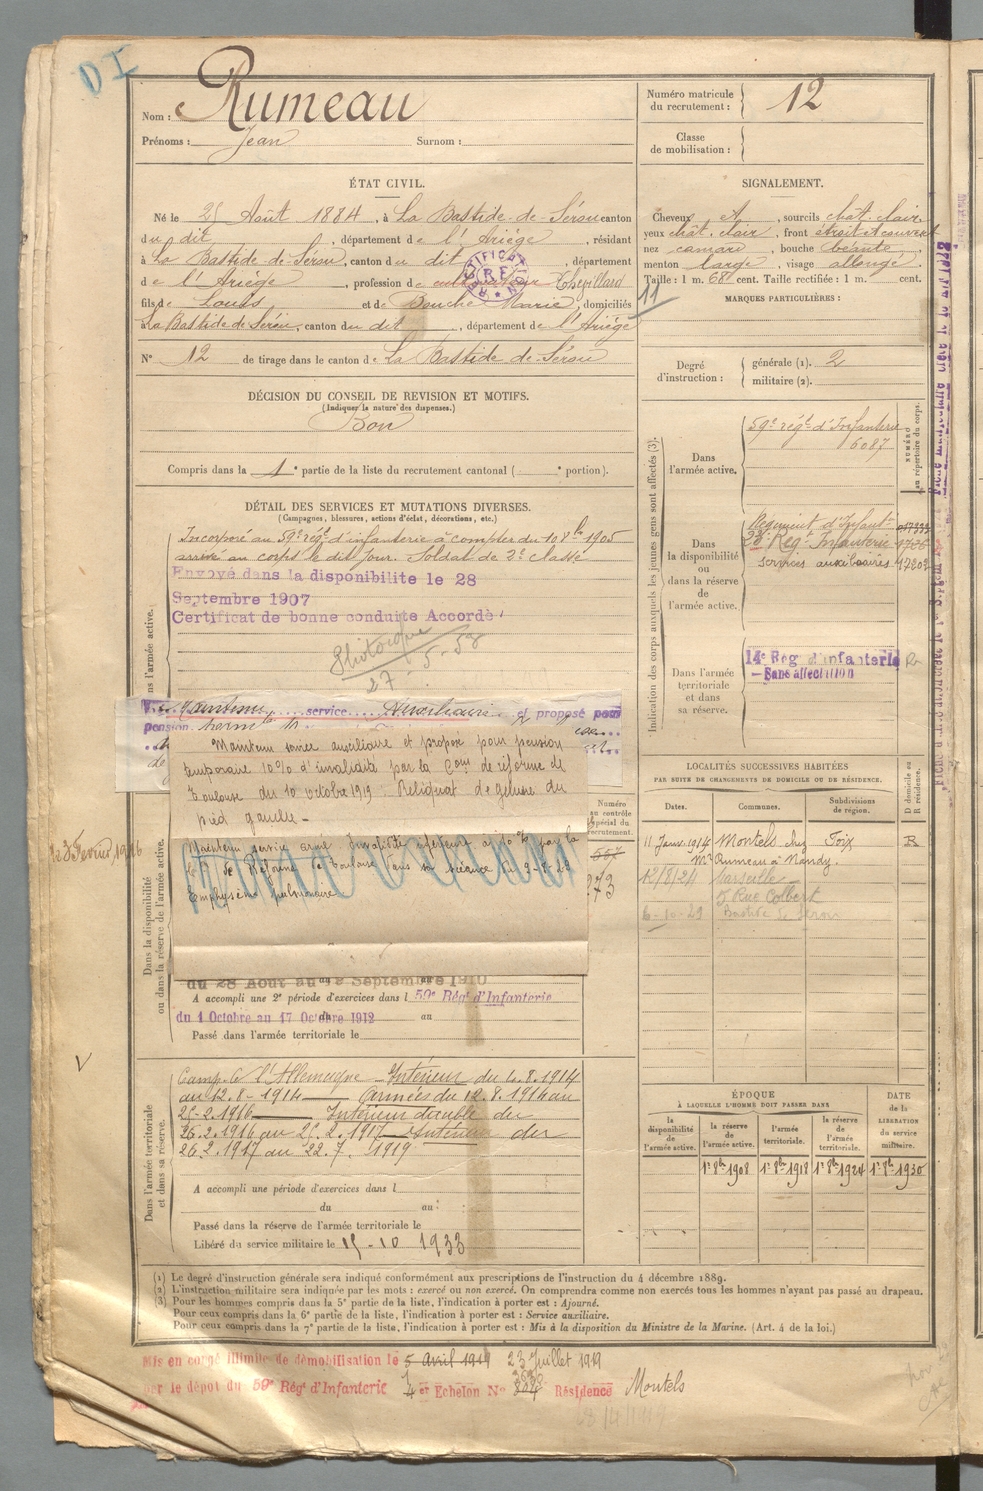 DI
Nom : Rumeau
Prénoms : Jean Surnom :
Numéro matricule du recrutement : 12
Classe de mobilisation :
ÉTAT CIVIL.
Né le 25 Août 1884, à La Bastide-de-Sérou canton
du dit, département de l'Ariège, résidant
à La Bastide-de-Sérou, canton du dit, département
de l'Ariège, profession de cultivateur
fils de Louis et de Bouche Marie, domiciliés
à La Bastide de Sérou, canton du dit, département de l'Ariège
N° 12 de tirage dans le canton de La Bastide de Sérou
RECTIFICATION R.F.
SIGNALEMENT.
Cheveux et, sourcils chât. clair
yeux chât. clair, front étroit et couvert
nez camard, bouche béante,
menton large, visage allongé.
Taille : 1 m. 68 cent. Taille rectifiée : 1 m. cent.
11
MARQUES PARTICULIÈRES :
Degré d'instruction : générale (1). 2
militaire (2).
DÉCISION DU CONSEIL DE REVISION ET MOTIFS.
(Indiquer la nature des dispenses.)
Bon
Compris dans la 1e partie de la liste du recrutement cantonal ( e portion).
DÉTAIL DES SERVICES ET MUTATIONS DIVERSES.
(Campagnes, blessures, actions d'éclat, décorations, etc.)
Incorporé au 59e régt d'infanterie à compter du 10 8bre 1905
arrivé au corps le dit jour. Soldat de 2e classe
Envoyé dans la disponibilité le 28
Septembre 1907
Certificat de bonne conduite Accordé
27 5-58
Maintenu service Auxiliaire et proposé pour
pension
Maintenu service auxiliaire et proposé pour pension
temporaire 10% d'invalidité par la Com de réforme de
Toulouse du 10 octobre 1919. Reliquat de gelure du
pied gauche -
Maintenu service armé invalidité inférieure à 10% par la
de Réforme de Toulouse dans sa séance du 9-8-29
Emphysème pulmonaire
du 28 Août au Septembre 1910
A accompli une 2e période d'exercices dans l 59e Régt d'Infanterie
du 1 Octobre au 17 Octobre 1912 au
Passé dans l'armée territoriale le
Camp. c/ l'Allemagne Intérieur du 4.8.1914
au 12.8-1914 Armées du 12.8.1914 au
25-2.1916 Intérieur double du
26.2.1916 au 25.2.1917 Intérieur du
26.2.1917 au 22.7.1919
A accompli une période d'exercices dans l
du au :
Passé dans la réserve de l'armée territoriale le
Libéré du service militaire le 15-10 1933
Dans la disponibilité ou dans la réserve de l'armée active.
Dans l'armée territoriale et dans sa réserve.
Indication des corps auxquels les jeunes gens sont affectés (3).
NUMÉRO au répertoire du corps.
Dans l'armée active. 59e régt d'Infanterie 6087
Dans la disponibilité ou dans la réserve de l'armée active.
Régiment d'Infant
23e Régt Infanterie
services auxiliaires
Dans l'armée territoriale et dans sa réserve.
14e Rég d'infanterie
- Sans affectation
Numéro au contrôle spécial du recrutement.
557
273
LOCALITÉS SUCCESSIVES HABITÉES
PAR SUITE DE CHANGEMENTS DE DOMICILE OU DE RÉSIDENCE.
Dates. Communes. Subdivisions de région. D domicile ou R résidence.
11 Janv. 1914 Montels chez Foix R
Mr Rumeau à Mandy.
12/8/24 Marseille
5 Rue Colbert
6-10-29 Bastide de Serou
ÉPOQUE
À LAQUELLE L'HOMME DOIT PASSER DANS
la disponibilité de l'armée active. la réserve de l'armée active. l'armée territoriale. la réserve de l'armée territoriale. DATE de la LIBÉRATION du service militaire.
1er 8bre 1908 1er 8bre 1918 1er 8bre 1924 1er 8bre 1930
(1) Le degré d'instruction générale sera indiqué conformément aux prescriptions de l'instruction du 4 décembre 1889.
(2) L'instruction militaire sera indiquée par les mots : exercé ou non exercé. On comprendra comme non exercés tous les hommes n'ayant pas passé au drapeau.
(3) Pour les hommes compris dans la 5e partie de la liste, l'indication à porter est : Ajourné.
Pour ceux compris dans la 6e partie de la liste, l'indication à porter est : Service auxiliaire.
Pour ceux compris dans la 7e partie de la liste, l'indication à porter est : Mis à la disposition du Ministre de la Marine. (Art. 4 de la loi.)
Mis en congé illimité de démobilisation le 5 Avril 1919 23 Juillet 1919
par le dépôt du 59e Régt d'Infanterie 4 er Echelon N° Résidence Montels